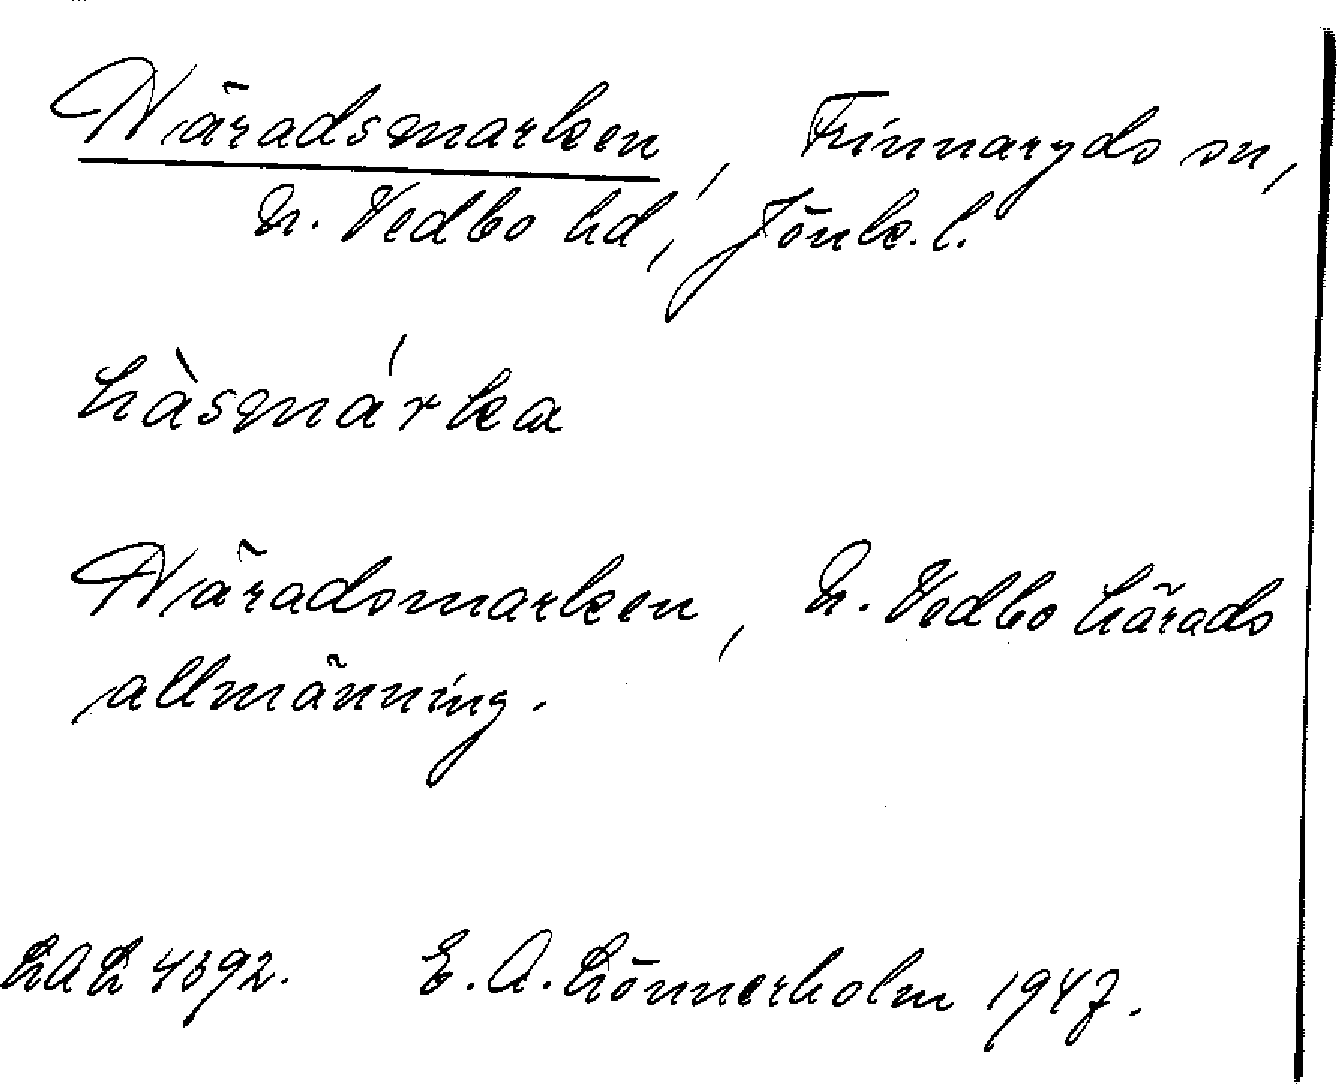 Häradsmarken, Finnaryds sn,
N. Vedbo hd, Jönk. l.
hàsmárka
Häradsmarken, N. Vedbo härads
allmänning.
LAL 4392. E. A. Lönnerholm 1947.